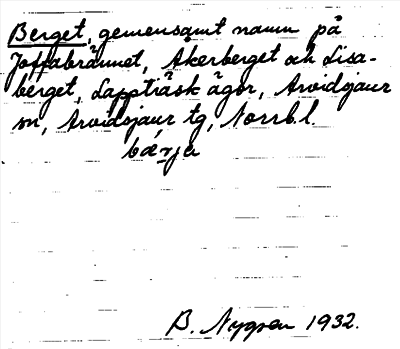 Berget, gemensamt namn på
Joffabrännet, Åkerberget och Lisa-
berget, Lappträsk ägor, Arvidsjaur
sn, Arvidsjaur tg, Norrb.l.
bærja
B. Nygren 1932.